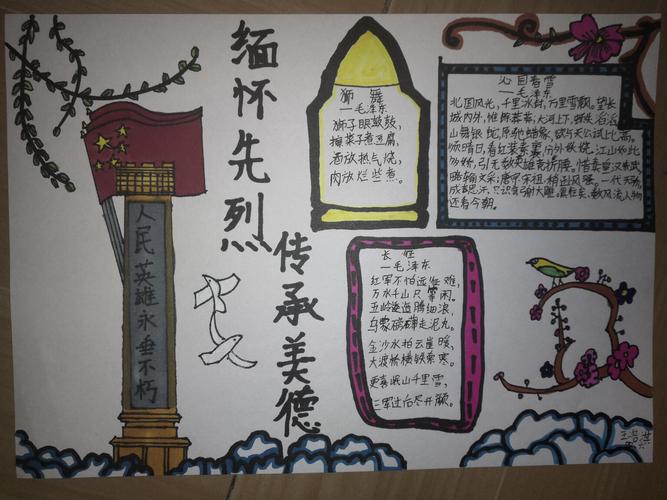 缅怀先烈
传承美德
人民英雄永垂不朽
狮 舞
—毛泽东
狮子眼鼓鼓,
擦菜子煮豆腐,
酒放热气烧,
肉放烂些煮。
沁园春雪
—毛泽东
北国风光,千里冰封,万里雪飘。望长
城内外,惟余莽莽,大河上下,顿失滔滔。
山舞银蛇,原驰蜡象,欲与天公试比高。
须晴日,看红装素裹,分外妖娆。江山如此
多娇,引无数英雄竞折腰。惜秦皇汉武
略输文采;唐宗宋祖,稍逊风骚。一代天骄,
成吉思汗,只识弯弓射大雕。俱往矣,数风流人物
还看今朝。
长 征
—毛泽东
红军不怕远征难,
万水千山只等闲。
五岭逶迤腾细浪,
乌蒙磅礴走泥丸。
金沙水拍云崖暖,
大渡桥横铁索寒。
更喜岷山千里雪,
三军过后尽开颜。
王浩淇